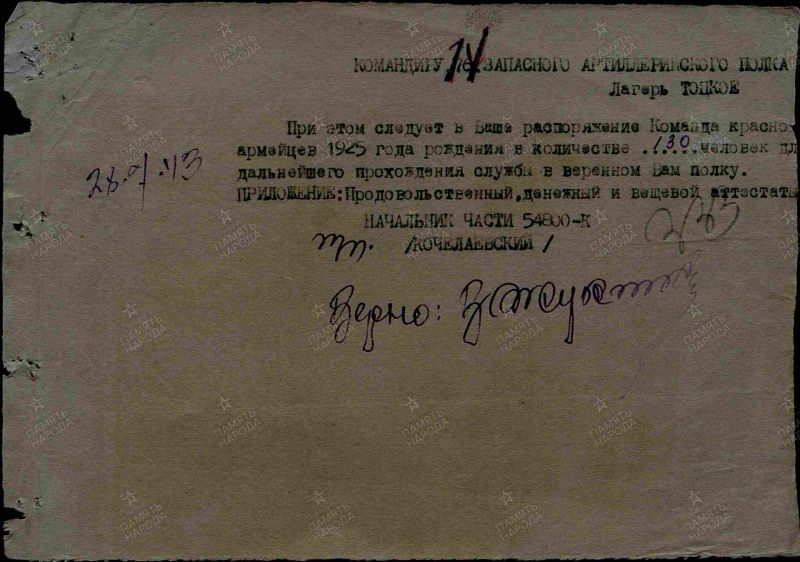 КОМАНДИРУ 14 ЗАПАСНОГО АРТИЛЛЕРИЙСКОГО ПОЛКА
Лагерь ТОЦКОЕ
При этом следует в Ваше распоряжение Команда красно-
армейцев 1925 года рождения в количестве .130.человек дл
дальнейшего прохождения службы в веренном Вам полку.
ПРИЛОЖЕНИЕ:Продовольственный,денежный и вещевой аттестаты
НАЧАЛЬНИК ЧАСТИ 54800-К
/КОЧЕЛАЕВСКИЙ/
Верно:
ПАМЯТЬ НАРОДА